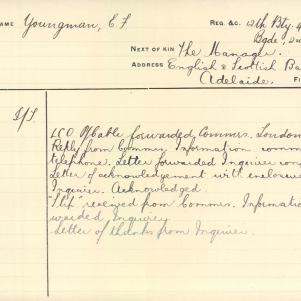 NAME Youngman, E.F. REG. &C. 12th Bty. 4
Bgde, 2n
NEXT OF KIN The Manager.
ADDRESS English & Scottish Ba
Adelaide.
LCO P/Cable forwarded Commrs. London
Reply from Commrs. Information comm
telephone. Letter forwarded Inquirer con
Letter of acknowledgement with enclosure
Inquirer. Acknowledged.
"Slip" received from Commrs. Informatio
warded Inquirer
Letter of thanks from Inquirer.